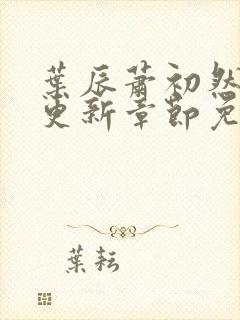 葉辰蕭初然
更新章節免
葉耘